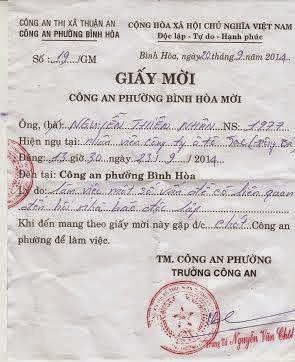 CÔNG AN THỊ XÃ THUẬN AN
CÔNG AN PHƯỜNG BÌNH HÒA
Số: 19 /GM
CỘNG HÒA XÃ HỘI CHỦ NGHĨA VIỆT NAM
Độc lập - Tự do - Hạnh phúc
Bình Hòa, ngày 20 tháng 9 năm 2014
GIẤY MỜI
CÔNG AN PHƯỜNG BÌNH HÒA MỜI
Ông, (bà): NGUYỄN THIỆN NHÂN NS: 1977
Hiện ngụ tại: Nhân viên công ty ô tô
Đúng: 13 giờ 30 ngày 23 / 9 / 2014
Đến tại: Công an phường Bình Hòa
Lý do: làm việc một số vấn đề có liên quan
đến hội nhà báo độc lập
Khi đến mang theo giấy mời này gặp đ/c Chót Công an
phường để làm việc.
TM. CÔNG AN PHƯỜNG
TRƯỞNG CÔNG AN
Nguyễn Văn